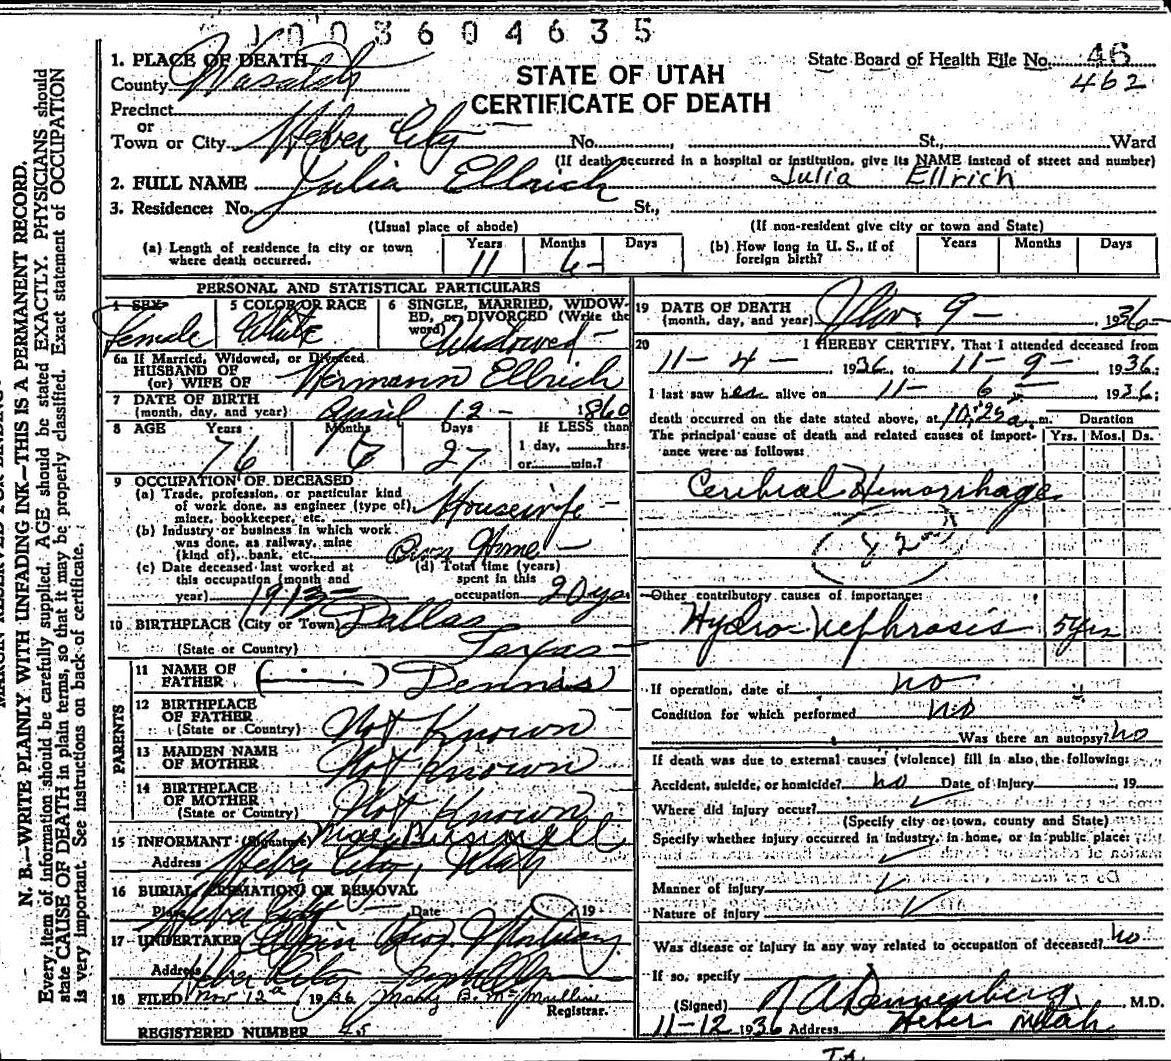 1003604635
1. PLACE OF DEATH
County Wasatch
STATE OF UTAH
CERTIFICATE OF DEATH
State Board of Health File No. 46
462
Precinct
or
Town or City Heber City No. St., Ward
(If death occurred in a hospital or institution, give its NAME instead of street and number)
2. FULL NAME Julia Ellrich Julia Ellrich
3. Residence: No. St.,
(Usual place of abode) (If non-resident give city or town and State)
(a) Length of residence in city or town where death occurred. Years 11 Months 6 Days
(b) How long in U. S., if of foreign birth? Years Months Days
PERSONAL AND STATISTICAL PARTICULARS
4 SEX Female
5 COLOR OR RACE White
6 SINGLE, MARRIED, WIDOWED, or DIVORCED (Write the word) Widowed
6a If Married, Widowed, or Divorced
HUSBAND OF
(or) WIFE OF Hermann Ellrich
7 DATE OF BIRTH
(month, day, and year) April 12 - 1860
8 AGE Years 76 Months 6 Days 27 If LESS than
1 day, hrs.
or min.?
9 OCCUPATION OF DECEASED
(a) Trade, profession, or particular kind
of work done, as engineer (type of),
miner, bookkeeper, etc. Housewife
(b) Industry or business in which work
was done, as railway, mine
(kind of), bank, etc. Own Home
(c) Date deceased last worked at
this occupation (month and
year)
(d) Total time (years)
spent in this
occupation 20 yrs
10 BIRTHPLACE (City or Town) Dallas
(State or Country) Texas
PARENTS
11 NAME OF
FATHER ( ) Dennis
12 BIRTHPLACE
OF FATHER
(State or Country) Not Known
13 MAIDEN NAME
OF MOTHER Not Known
14 BIRTHPLACE
OF MOTHER
(State or Country) Not Known
15 INFORMANT (Signature)
Address Heber City, Utah
16 BURIAL, CREMATION, OR REMOVAL
Place Heber City Date 19
17 UNDERTAKER Bros. Mortuary
Address Heber City
18 FILED Nov 12 1936 Mary B.
Registrar.
REGISTERED NUMBER 45
19 DATE OF DEATH
(month, day, and year) Nov. 9 - 1936
20 I HEREBY CERTIFY, That I attended deceased from
11 - 4 - 1936, to 11 - 9 - 1936;
I last saw her alive on 11 - 6 - 1936;
death occurred on the date stated above, at 10:25 a. m. Duration
The principal cause of death and related causes of importance were as follows: Yrs. Mos. Ds.
Cerebral Hemorrhage
82
Other contributory causes of importance:
Hydro-nephrosis 5 yrs
If operation, date of no
Condition for which performed no
Was there an autopsy? no
If death was due to external causes (violence) fill in also the following:
Accident, suicide, or homicide? no Date of injury , 19
Where did injury occur?
(Specify city or town, county and State)
Specify whether injury occurred in industry, in home, or in public place:
Manner of injury
Nature of injury
Was disease or injury in any way related to occupation of deceased? no
If so, specify
(Signed) Dannenberg, M.D.
11-12 1936 Address Heber Utah
N. B.—WRITE PLAINLY WITH UNFADING INK—THIS IS A PERMANENT RECORD.
Every item of information should be carefully supplied. AGE should be stated EXACTLY. PHYSICIANS should
state CAUSE OF DEATH in plain terms, so that it may be properly classified. Exact statement of OCCUPATION
is very important. See instructions on back of certificate.